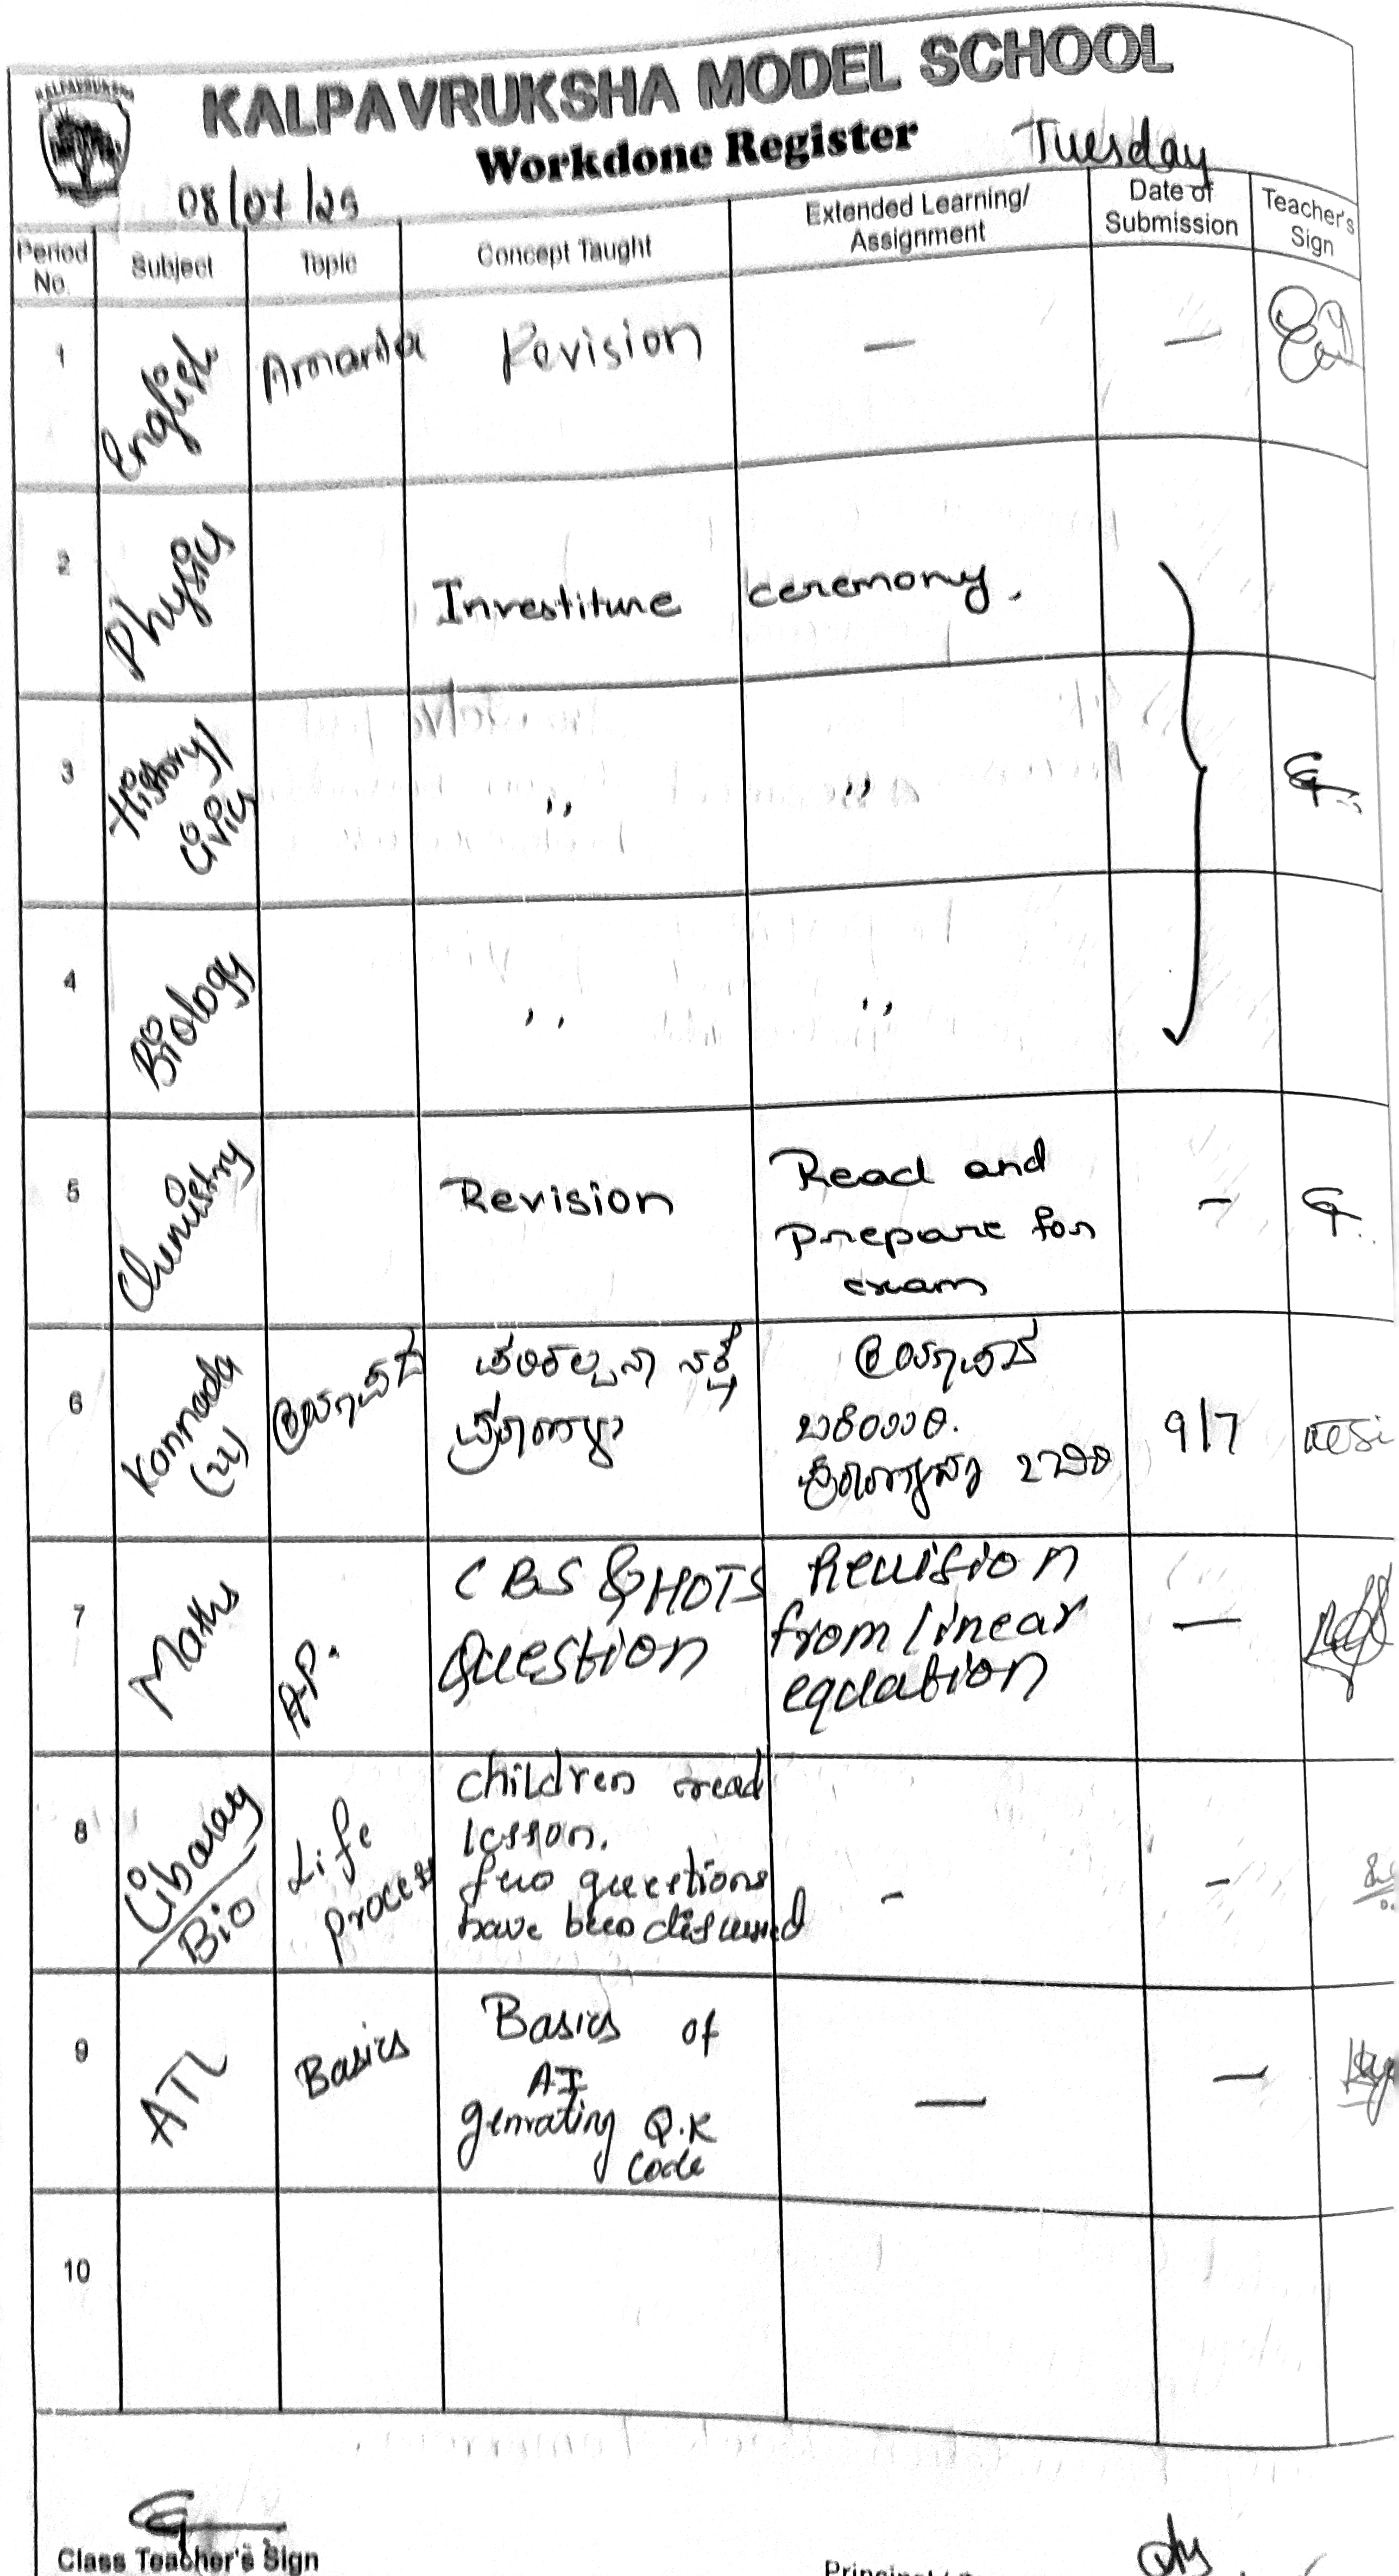 KALPAVRUKSHA
KALPAVRUKSHA MODEL SCHOOL
Workdone Register
Tuesday
08/07/25
Period No.
Subject
Topic
Concept Taught
Extended Learning/ Assignment
Date of Submission
Teacher's Sign
1
English
Amanda
Revision
—
—
2
Physics
Investiture ceremony.
3
History/
Civics
,,
,,
4
Biology
,,
,,
5
Chemistry
Revision
Read and
prepare for
exam
-
6
Kannada
(2L)
9/7
7
Maths
A.P.
CBS & HOTS
Question
Revision
from linear
equation
—
8
Library
Bio
Life
process
children read
lesson.
few questions
have been discussed
-
-
9
ATL
Basics
Basics of
AI
genrating Q.R
Code
—
—
10
Class Teacher's Sign